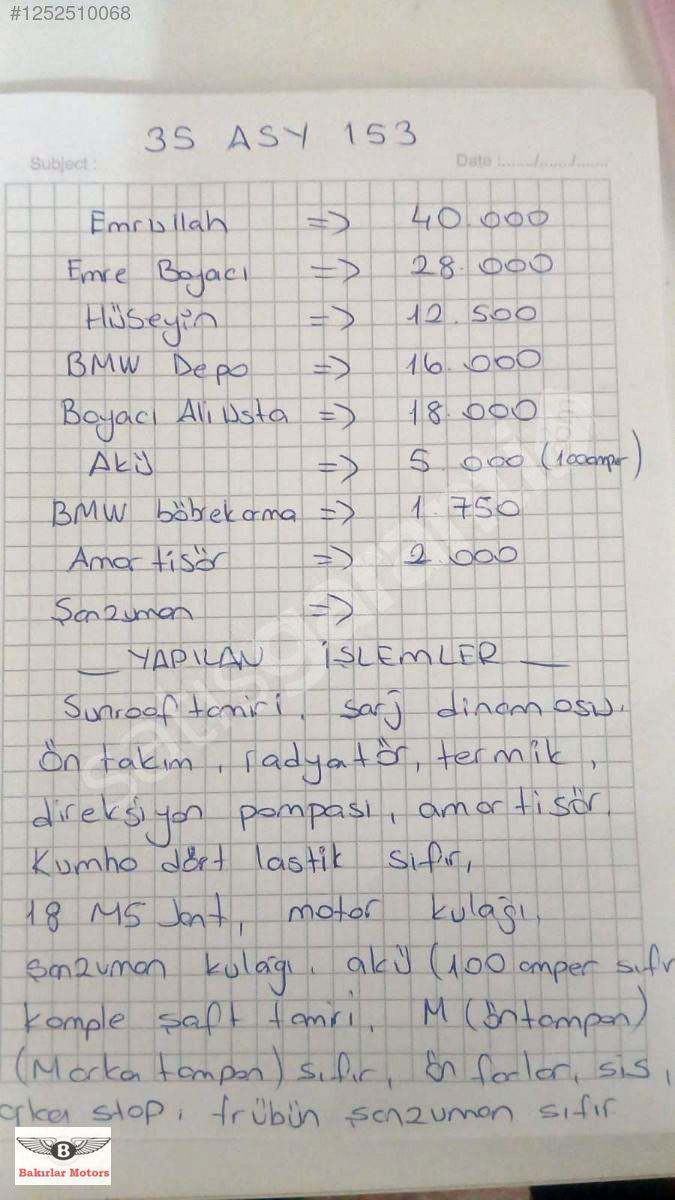 #1252510068
35 ASY 153
Subject :
Date :....../....../......
Emrullah => 40.000
Emre Boyacı => 28.000
Hüseyin => 12.500
BMW Depo => 16.000
Boyacı Ali Usta => 18.000
Akü => 5.000 (100amper)
BMW böbrek arma => 1.750
Amortisör => 2.000
Şanzuman =>
— YAPILAN İŞLEMLER —
Sunroof tamiri, şarj dinamosu.
Ön takım, radyatör, termik,
direksiyon pompası, amortisör,
Kumho dört lastik sıfır,
18 M5 Jant, motor kulağı,
şanzuman kulağı, akü (100 amper sıfır
Komple şaft tamiri, M (Öntampon)
(M arka tampon) sıfır, ön farlar, sis,
arka stop, trübün şanzuman sıfır
B
Bakırlar Motors